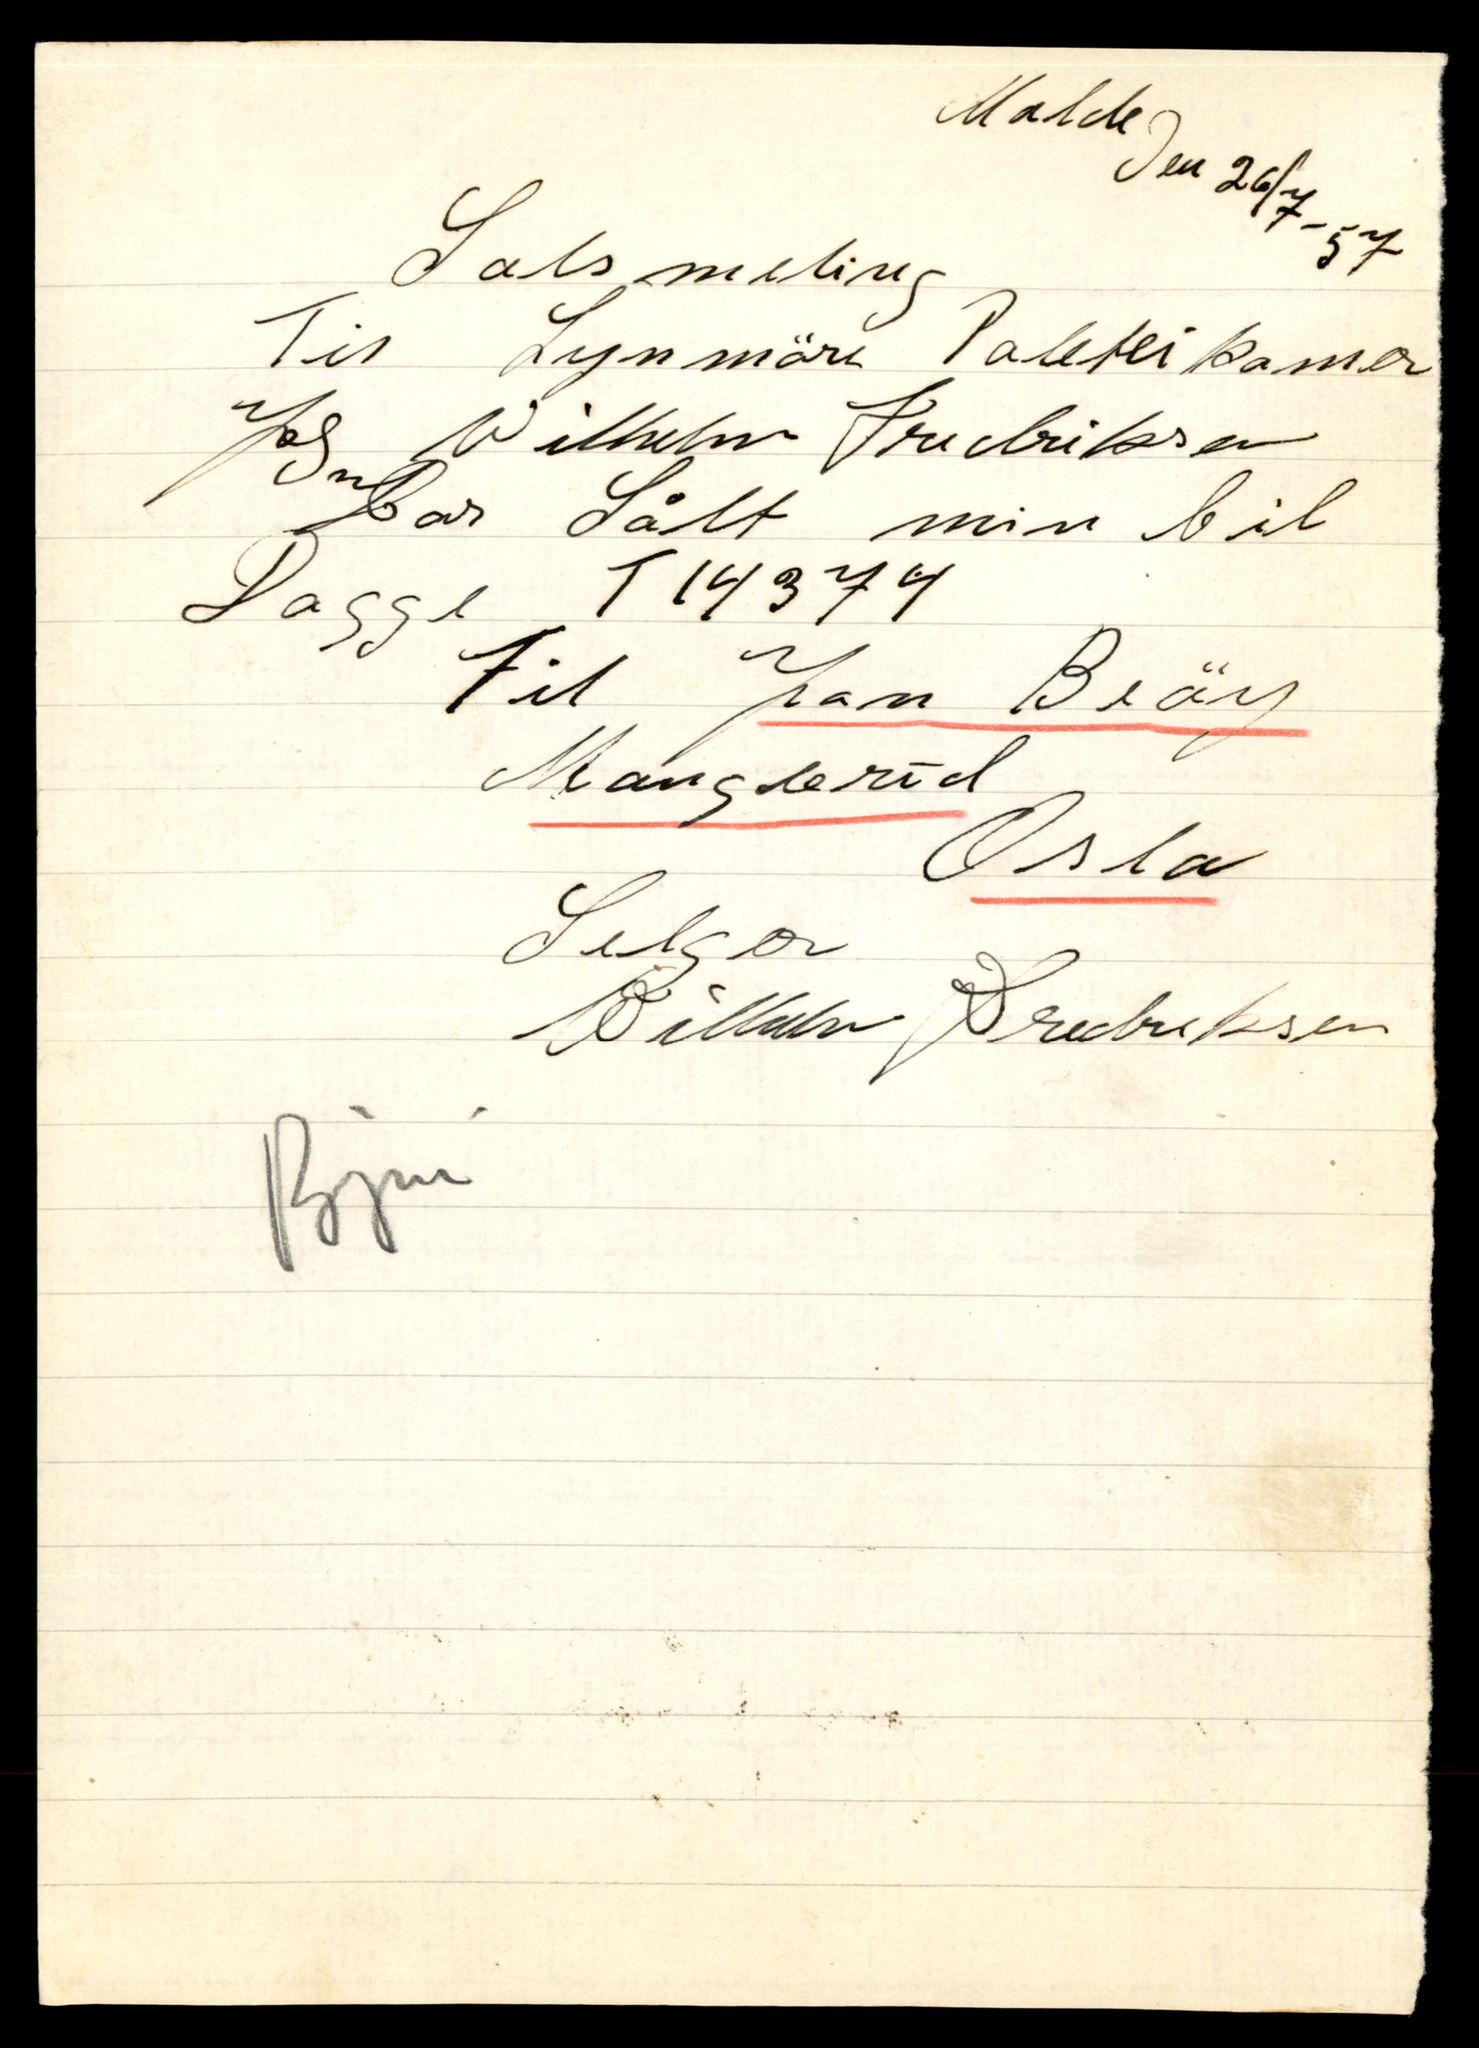 Molde
Den 26/7-57
Salsmeling
Til Synmöre Polltei kamer
Jeg Wilhelm Fredriksen
har Sålt min bil
Dagge T 14374
Til Jan Beöy
Manglerud
Oslo
Selger
Wilhelm Fredriksen